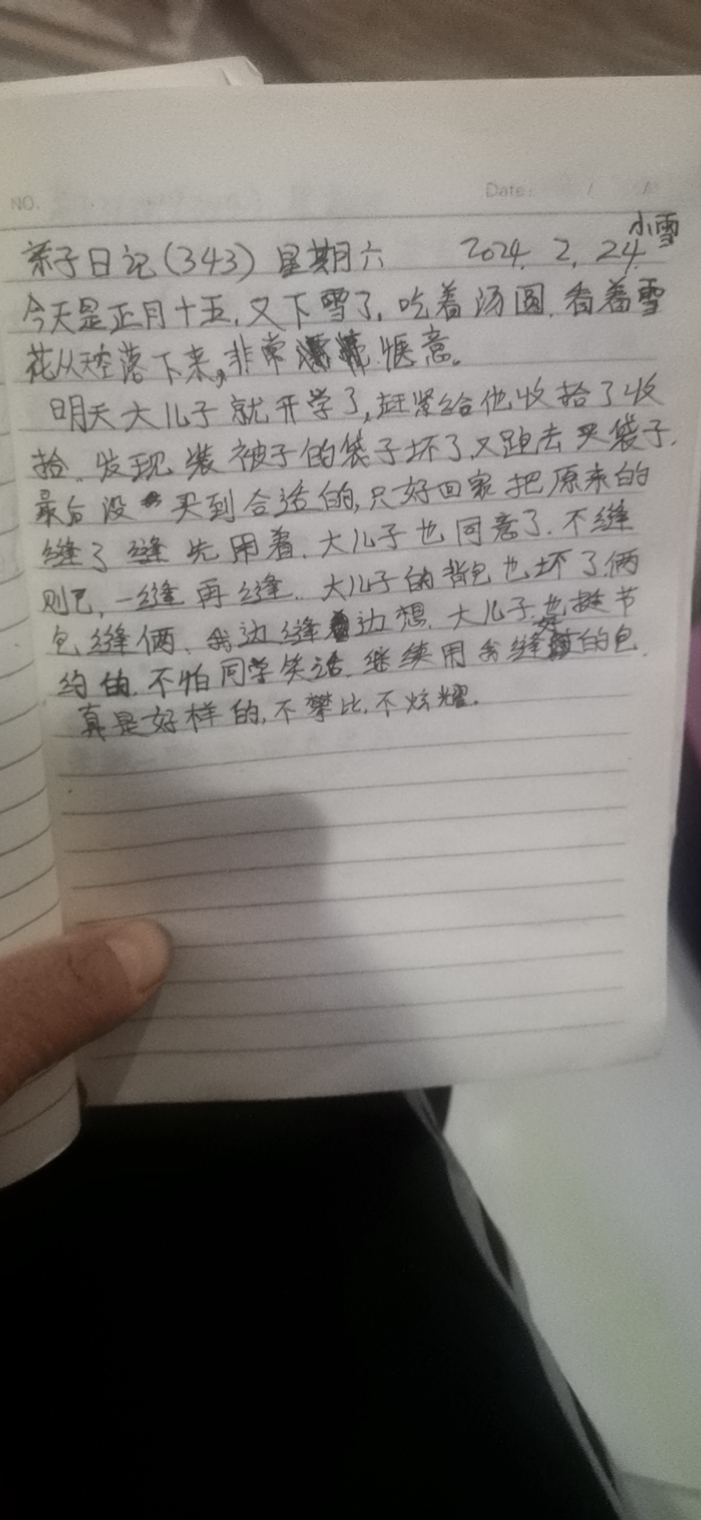 NO.
Date: / /
小雪
亲子日记(343) 星期六 2024. 2. 24.
今天是正月十五,又下雪了,吃着汤圆,看着雪
花从天空落下来,非常惬意。
明天大儿子就开学了,赶紧给他收拾了收
拾,发现装被子的袋子坏了,又跑去买袋子.
最后没买到合适的,只好回家把原来的
缝了缝先用着,大儿子也同意了,不缝
则已,一缝再缝,大儿子的背包也坏了俩
包缝俩,我边缝边想,大儿子也挺节
约的,不怕同学笑话,继续用我缝好的包.
真是好样的,不攀比,不炫耀.